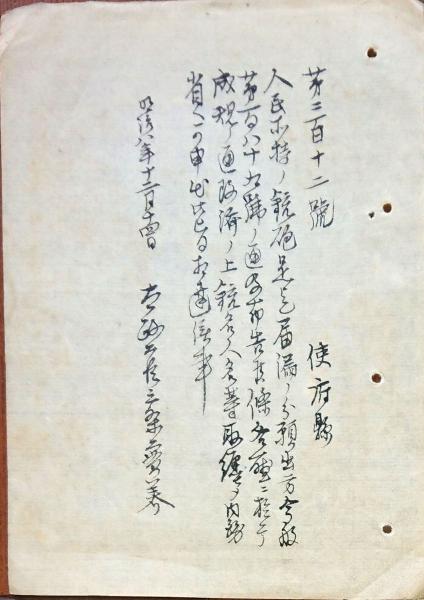 第二百十二號
使府縣
人民所持ノ銃砲是迄届漏ノ分願出方今般
第百八十九號ノ通及布告候條各廳ニ於テ
成規ノ通改濟ノ上銃名人名等取纏メ内務
省ヘ可申出此旨相達候事
明治八年十二月十四日
太政大臣三條實美